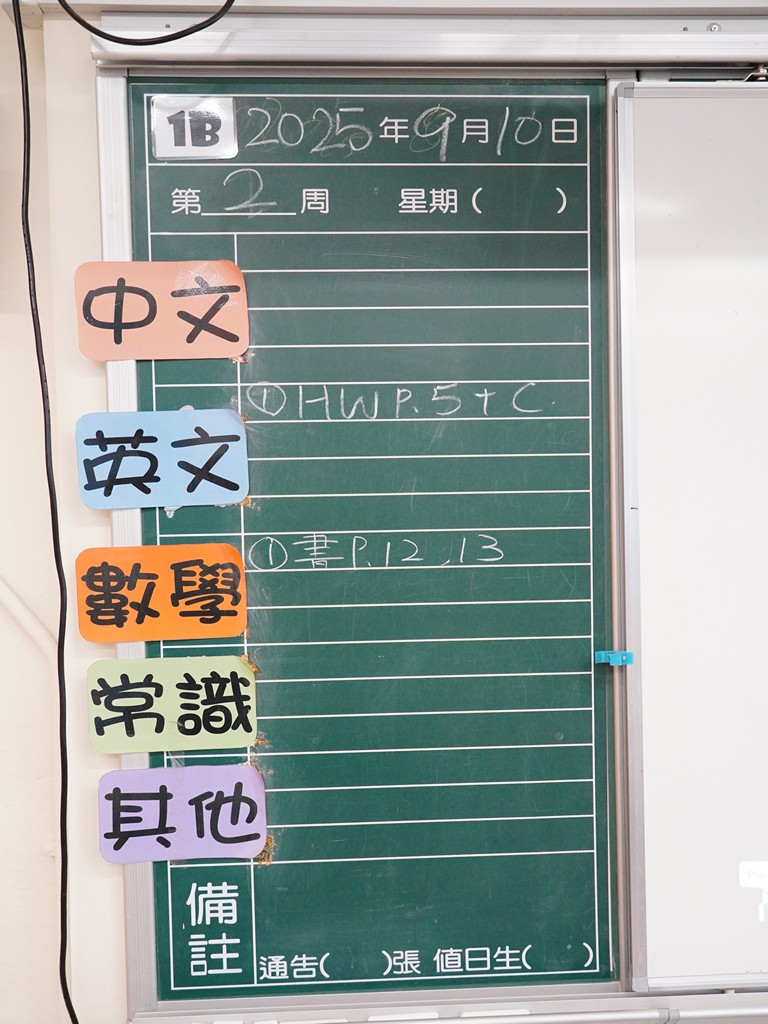 1B 2025年9月10日
第2周 星期( )
中文
①HW P.5+C.
英文
①書P.12,13
數學
常識
其他
備註
通告( )張 值日生( )